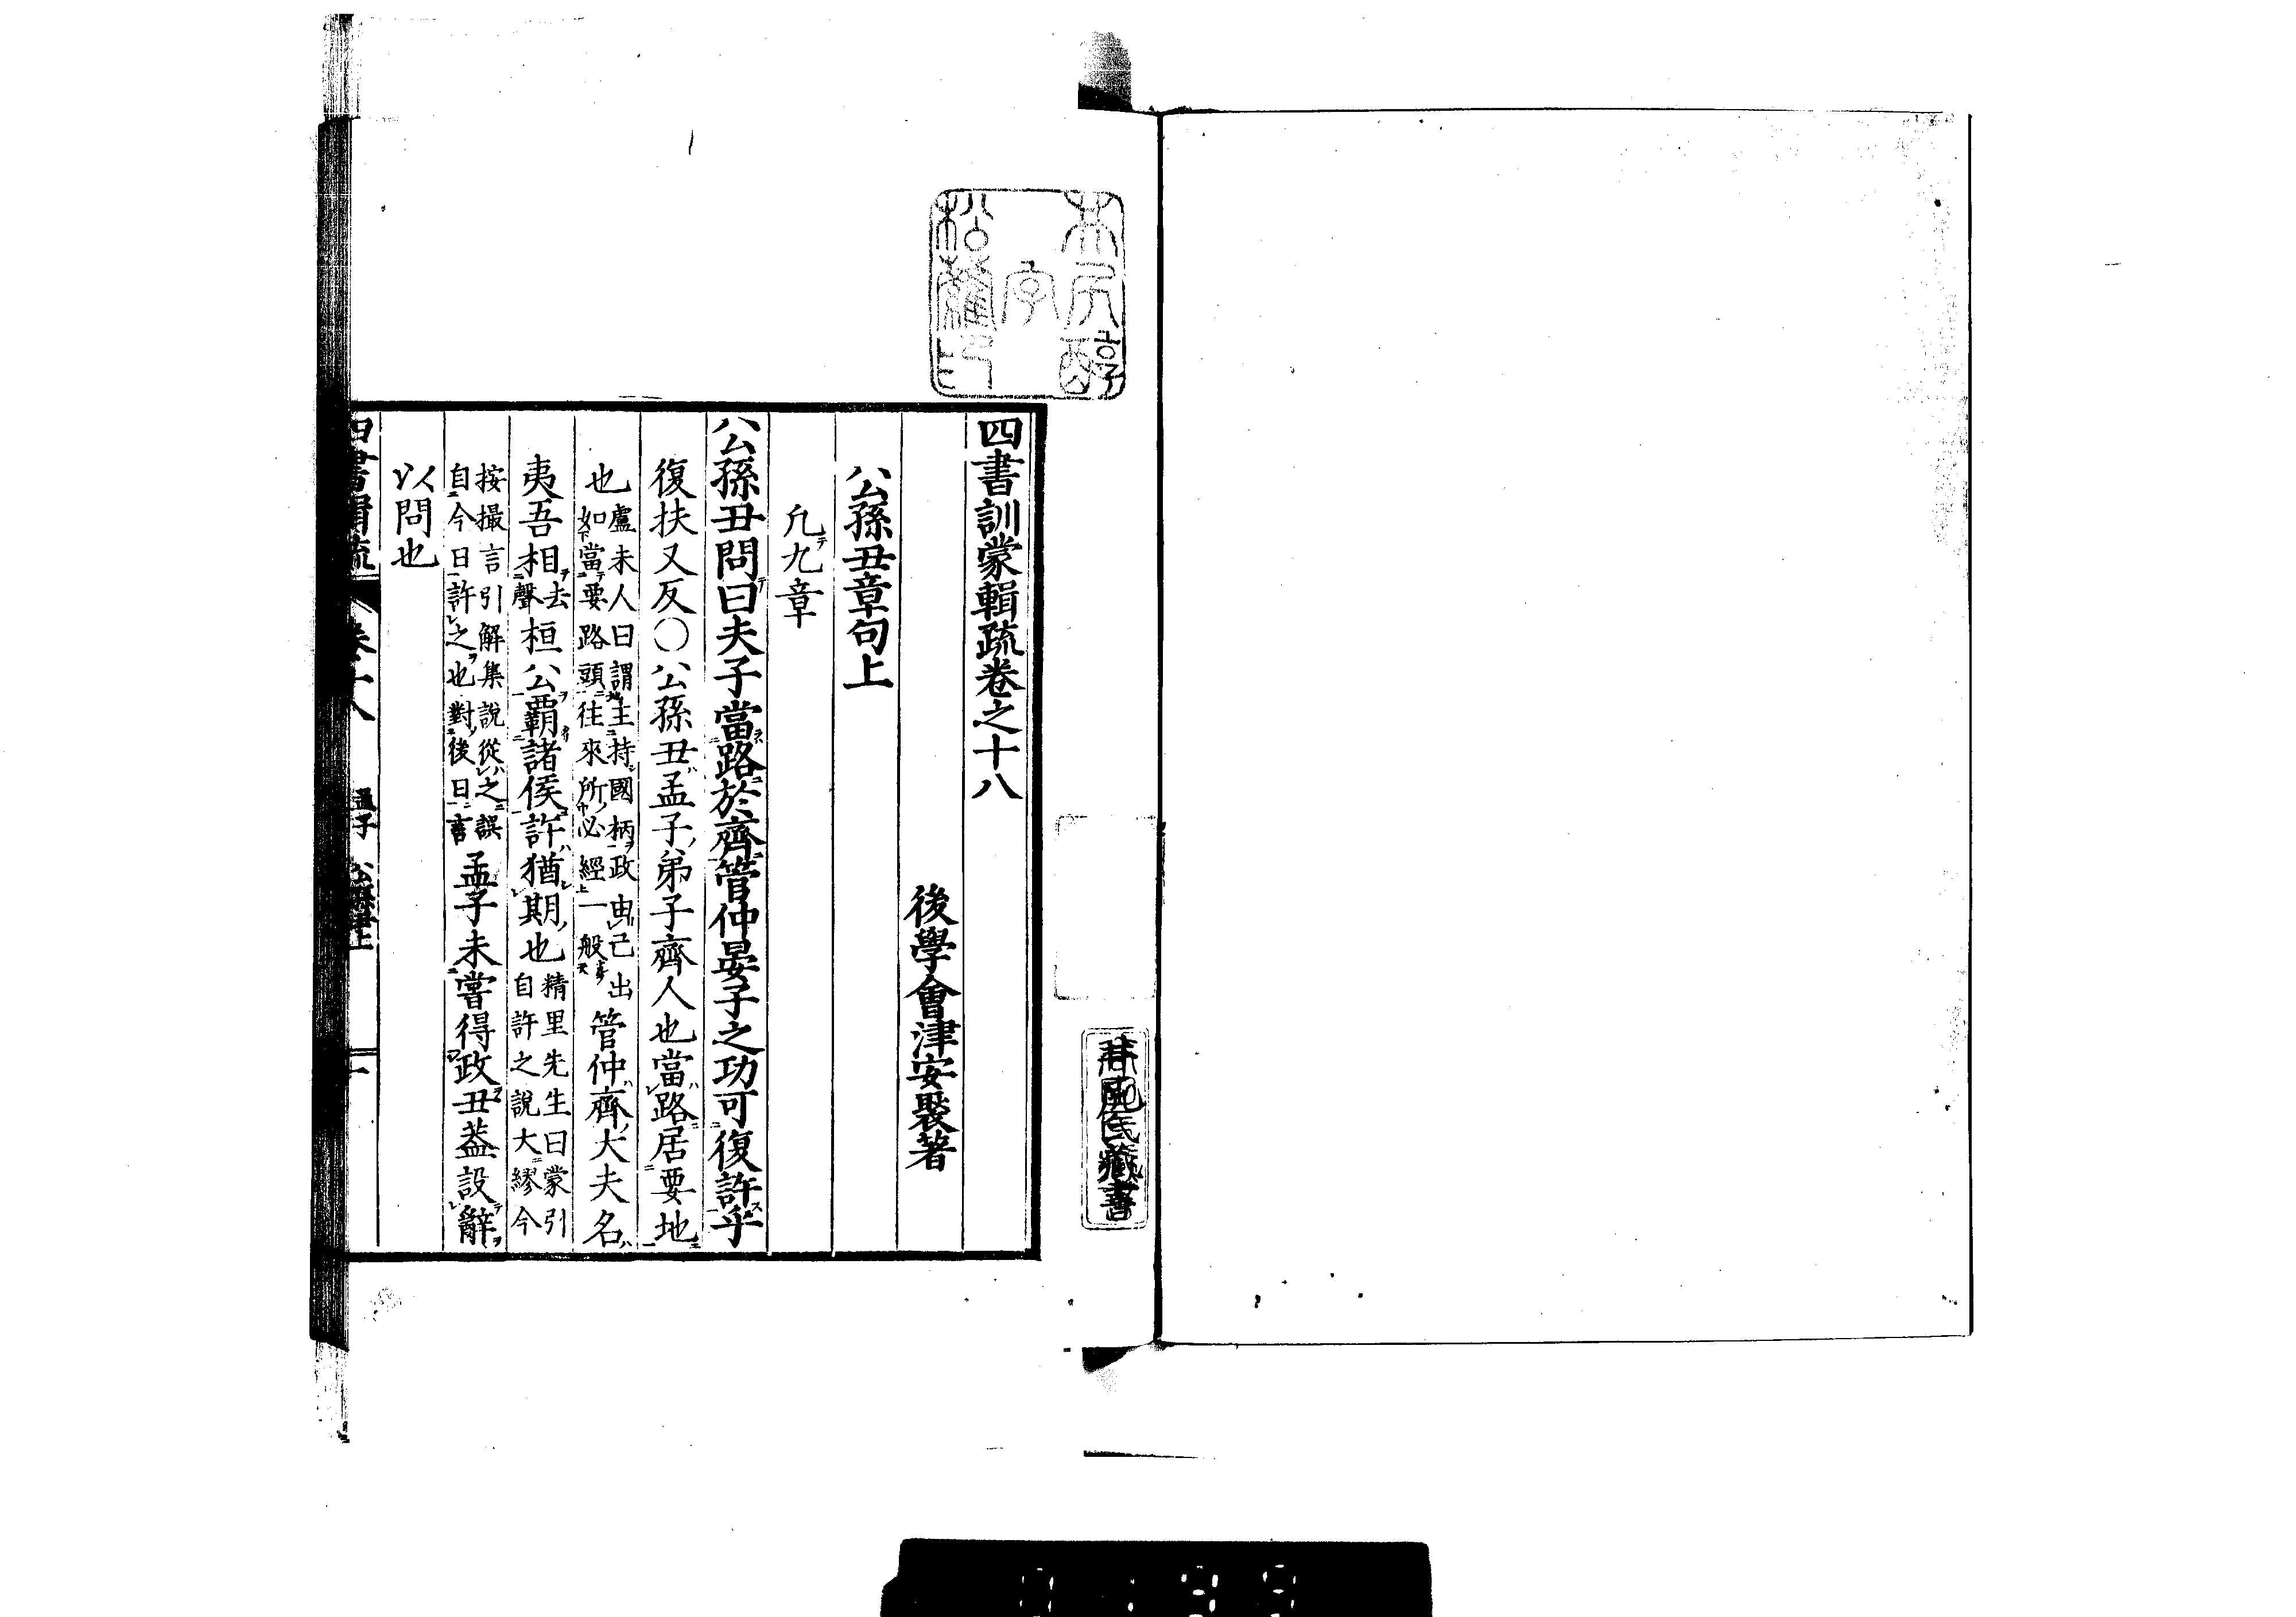 四書訓蒙輯疏卷之十八
後學會津安褧著
公孫丑章句上
凡九章
公孫丑問曰夫子當路於齊管仲晏子之功可復許乎
復扶又反○公孫丑孟子弟子齊人也當路居要地
也盧未人曰謂主持國柄政由己出
如當要路頭往來所必經一般管仲齊大夫名
夷吾相去聲桓公霸諸侯許猶期也精里先生曰蒙引
自許之說大繆今
按撮言引解集說從之誤
自今日許之也對後日言孟子未嘗得政丑蓋設辭
以問也
四書輯疏 卷十八 孟子 公孫丑上 一